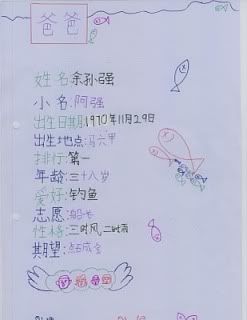 爸爸
姓名:余孙强
小名:阿强
出生日期:1970年11月29日
出生地点:冯六甲
排行:第一
年龄:三十八岁
爱好:钓鱼
志愿:船长
性格:三时风,二时雨
期望:点石成金